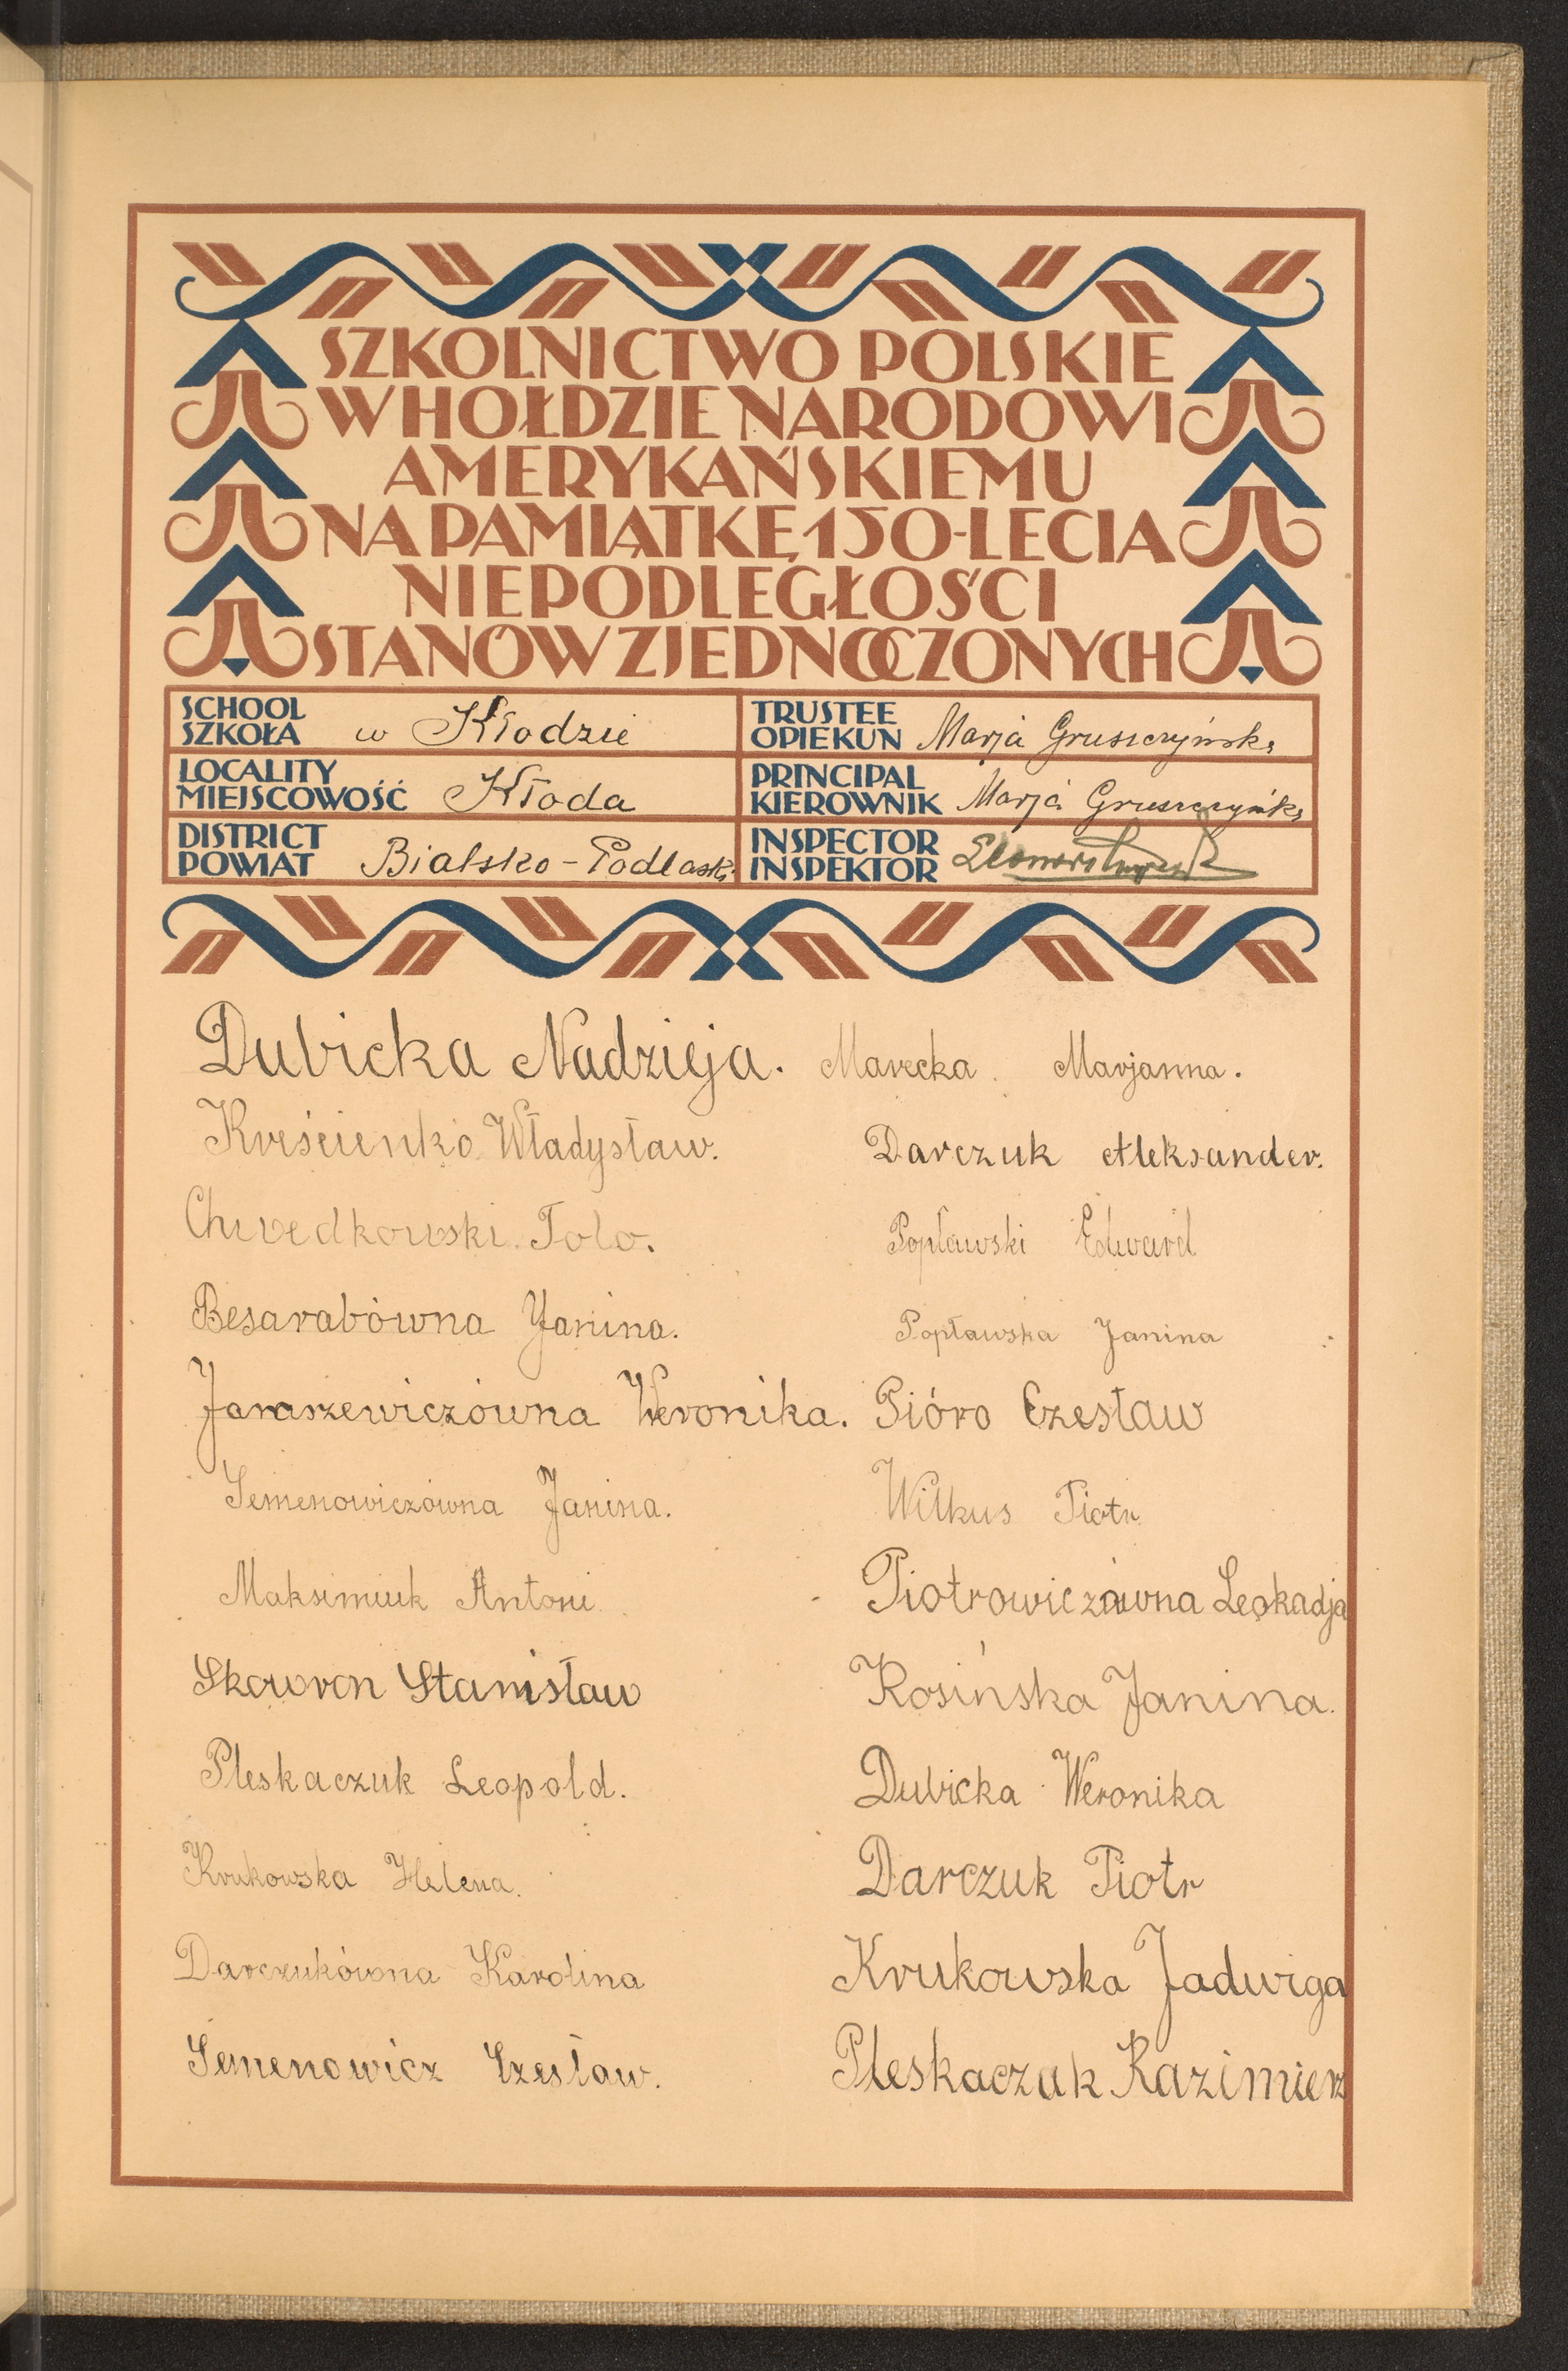 SZKOLNICTWO POLSKIE
W HOŁDZIE NARODOWI
AMERYKAŃSKIEMU
NA PAMIĄTKĘ 150-LECIA
NIEPODLEGŁOŚCI
STANÓW ZJEDNOCZONYCH
SCHOOL
SZKOŁA w Kłodzie
LOCALITY
MIEJSCOWOŚĆ Kłoda
DISTRICT
POWIAT Bialsko-Podlaski
TRUSTEE
OPIEKUN Marja Gruszczyńska
PRINCIPAL
KIEROWNIK Marja Gruszczyńska
INSPECTOR
INSPEKTOR
Dubicka Nadzieja.
Kreścienko Władysław.
Chwedkowski Tolo.
Besarabówna Janina.
Jaraszewiczówna Weronika.
Semenowiczówna Janina.
Maksimiuk Antoni
Skowron Stanisław
Pleskaczuk Leopold.
Krukowska Helena.
Darczukówna Karolina
Semenowicz Czesław.
Marecka Marjanna.
Darczuk Aleksander.
Popławski Edward
Popławska Janina
Pióro Czesław
Wilkus Piotr
Piotrowiczówna Leokadja
Rosińska Janina.
Dubicka Weronika
Darczuk Piotr
Krukowska Jadwiga
Pleskaczuk Kazimierz